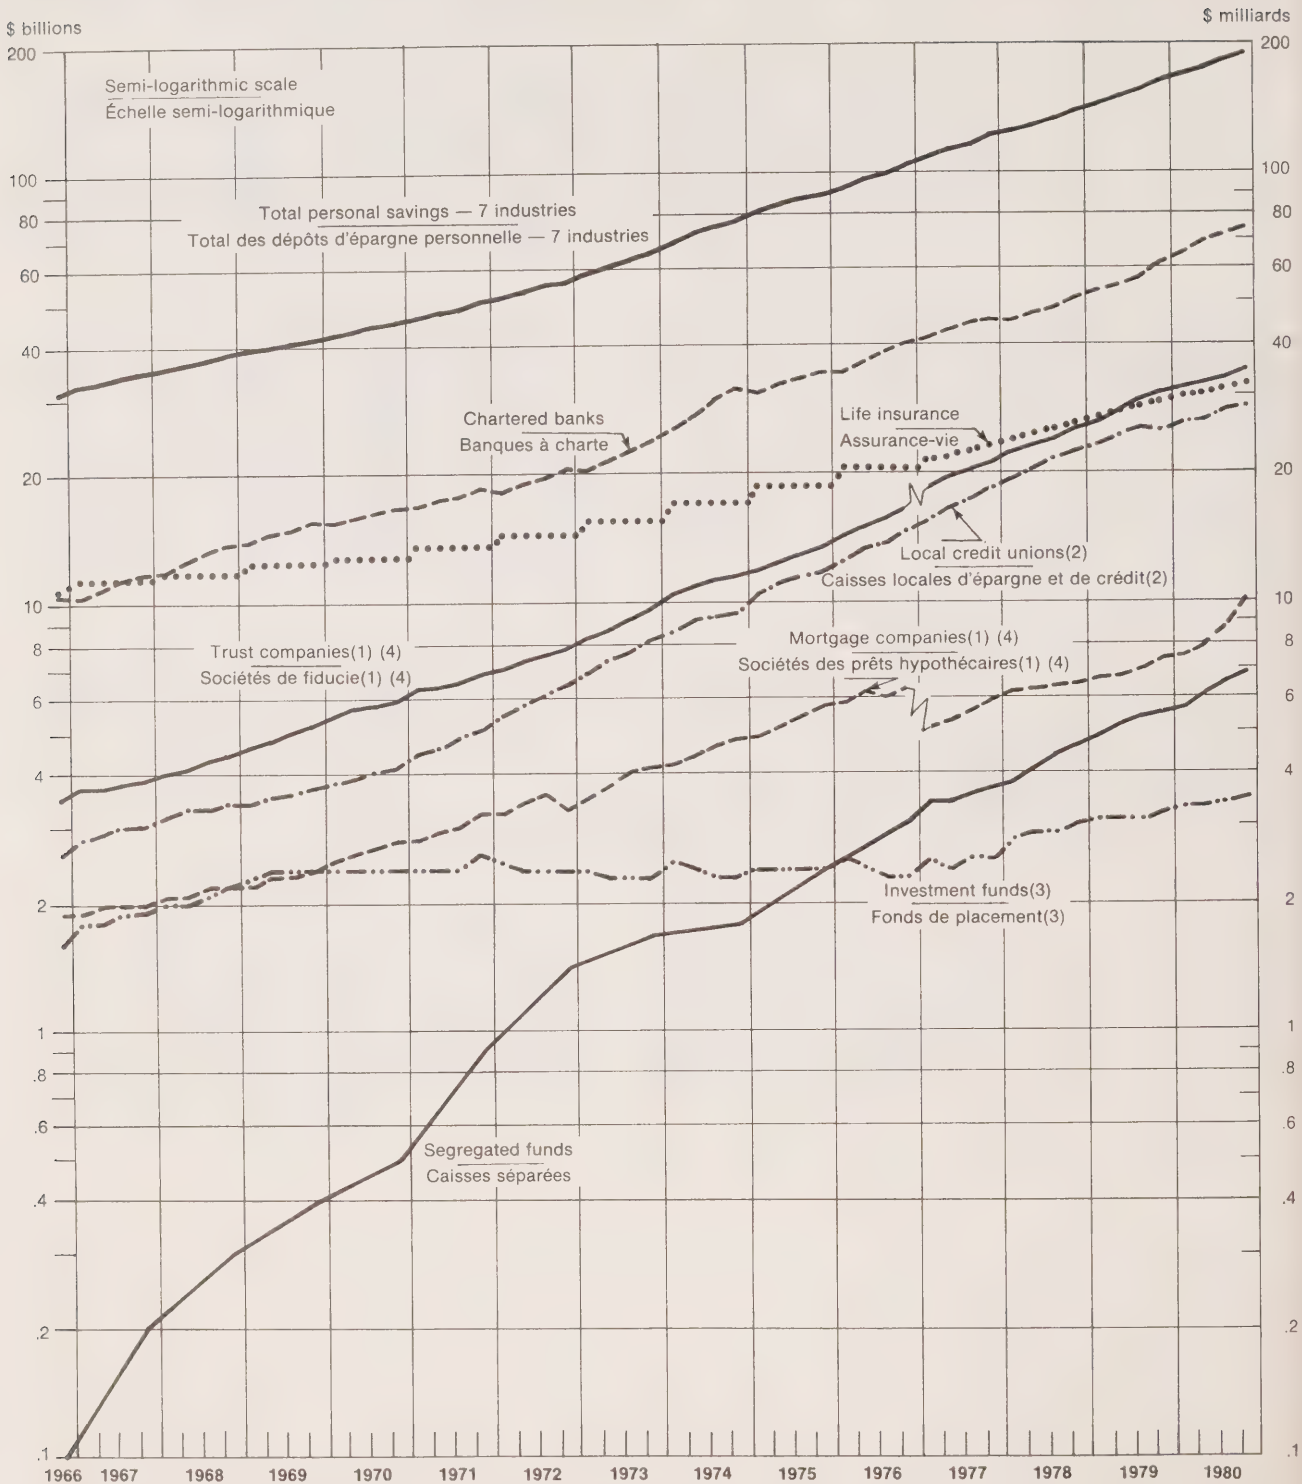 $ billions
$ milliards
200
200
Semi-logarithmic scale
Échelle semi-logarithmique
100
100
Total personal savings — 7 industries
Total des dépôts d'épargne personnelle — 7 industries
80
80
60
60
40
40
Chartered banks
Banques à charte
Life insurance
Assurance-vie
20
20
Local credit unions(2)
Caisses locales d'épargne et de crédit(2)
10
10
Trust companies(1) (4)
Sociétés de fiducie(1) (4)
Mortgage companies(1) (4)
Sociétés des prêts hypothécaires(1) (4)
8
8
6
6
4
4
Investment funds(3)
Fonds de placement(3)
2
2
1
1
.8
.8
.6
.6
Segregated funds
Caisses séparées
.4
.4
.2
.2
.1
.1
1966 1967 1968 1969 1970 1971 1972 1973 1974 1975 1976 1977 1978 1979 1980